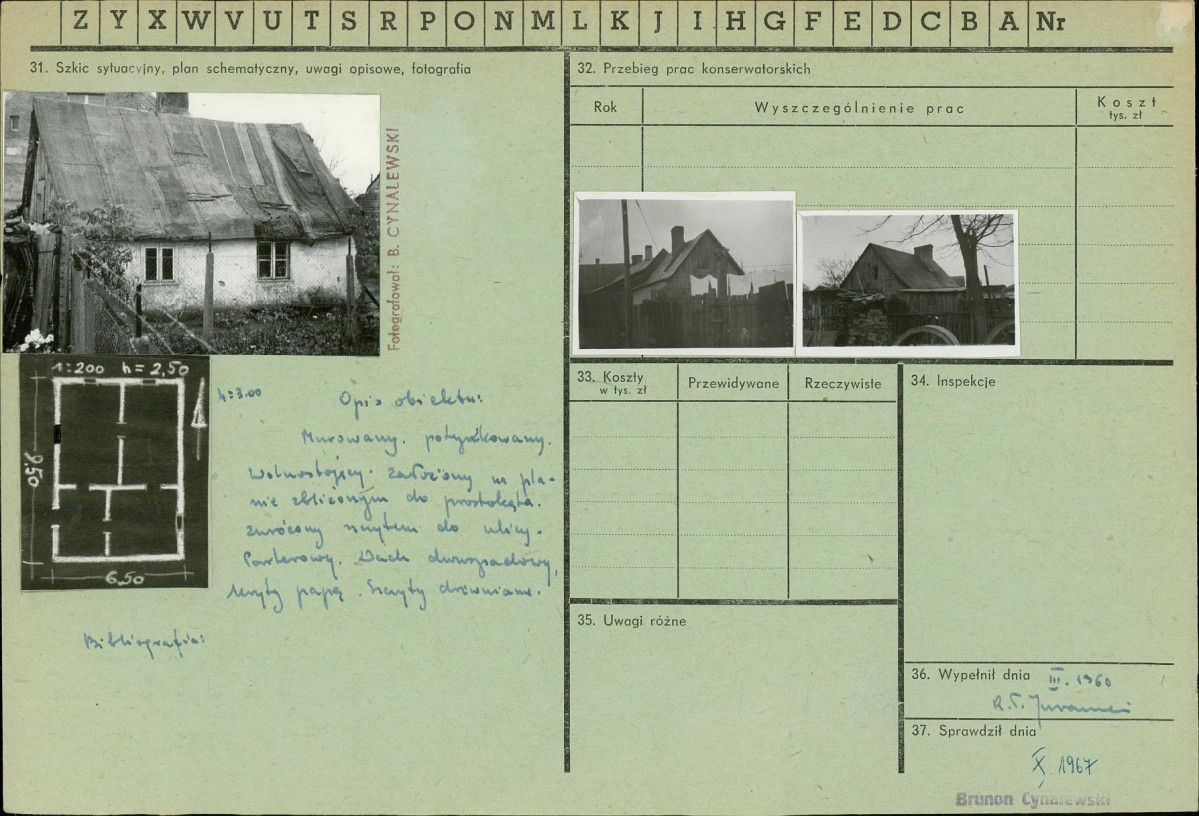 Z Y X W V U T S R P O N M L K J I H G F E D C B A Nr
31. Szkic sytuacyjny, plan schematyczny, uwagi opisowe, fotografia
Fotografował: B. CYNALEWSKI
1:200 h=2,50
9,50
6,50
h=3.00
Opis obiektu:
Murowany. potynkowany.
Wolnostojący. Założony na pla-
nie zbliżonym do prostokąta.
Zwrócony szczytem do ulicy.
Parterowy. Dach dwuspadowy,
kryty papą. Szczyty drewniane.
Bibliografia:
32. Przebieg prac konserwatorskich
Rok
Wyszczególnienie prac
Koszt
tys. zł
33. Koszty
w tys. zł
Przewidywane
Rzeczywiste
34. Inspekcje
35. Uwagi różne
36. Wypełnił dnia III. 1960
37. Sprawdził dnia
X 1967
Brunon Cynalewski